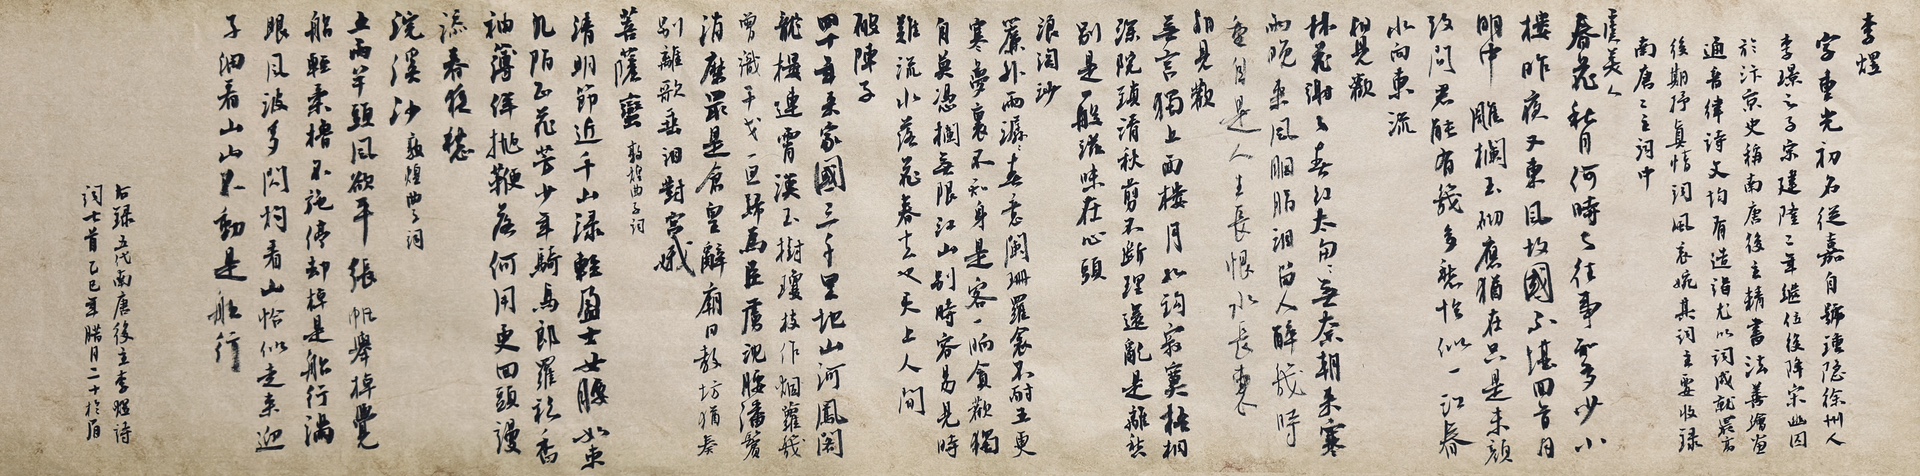 李煜
字重光初名從嘉自號鍾隐徐州人
李璟之子宗建隆二年继位後降宋幽囚
於汴京史稱南唐後主精書法善繪畫
通音律诗文均有造诣尤以词成就最高
後期抒真情词風哀婉其词主要收录
南唐二主词中
虞美人
春花秋月何時了往事知多少小
樓昨夜又東風故國不堪回首月
明中雕欄玉砌應猶在只是朱颜
改问君能有幾多愁恰似一江春
水向東流
相見歡
林花謝了春红太匆匆無奈朝来寒
雨晚来風胭脂泪留人醉幾時
重自是人生長恨水長東
相見歡
無言獨上西樓月如鈎寂寞梧桐
深院鎖清秋剪不断理還亂是離愁
别是一般滋味在心頭
浪淘沙
簾外雨潺潺春意闌珊羅衾不耐五更
寒夢裏不知身是客一晌貪歡獨
自莫憑欄無限江山别時容易見時
難流水落花春去也天上人間
破陣子
四十年来家國三千里地山河鳳閣
龍樓連霄漢玉樹瓊枝作烟蘿幾
曾識干戈一旦歸為臣虜沈腰潘鬢
消磨最是倉皇辭廟日教坊猶奏
别離歌垂泪對宫娥
菩薩蠻 敦煌曲子词
清明節近千山渌輕盈士女腰如束
九陌正花芳少年騎馬郎羅衫香
袖薄佯抛鞭落何用更回頭謾
添春夜愁
浣溪沙 敦煌曲子词
五兩竿頭風欲平張帆舉棹覺
船輕柔橹不施停却棹是船行满
眼風波多閃灼看山恰似走来迎
子细看山山不動是船行
右録五代南唐後主李煜诗
词七首乙巳年腊月二十於眉